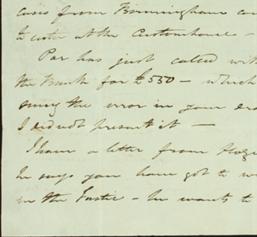 from Birmingham
to enter at the Customhouse –
Par has just called
the Bank for £550 – which
owing the error in your
I did not present it –
I have a letter from
he says you have got to
in the – he wants to